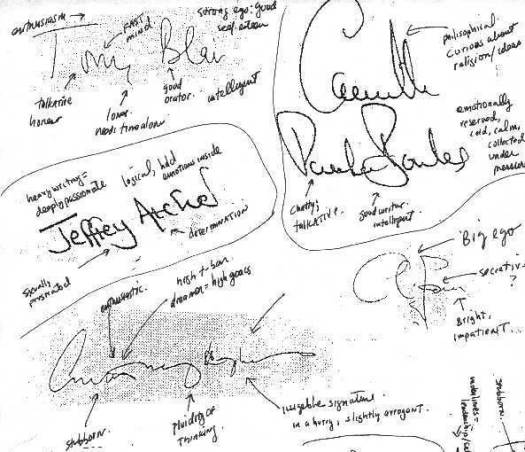 enthusiasm
FAST
mind
strong ego: good
self/esteem
Tony Blair
talkative
honour
loner
needs time alone
good
orator.
intelligent
Camilla
Parker Bowles
philosophical.
curious about
religion/ideas
emotionally
reserved,
cold, calm,
collected
under
pressure
chatty,
TALKATIVE.
good writer.
intelligent
heavy writing =
deeply passionate
logical, hold
emotions inside
Jeffrey Archer
DETERMINATION
socially
frustrated
enthusiastic.
high t-bar
dreamer = high goals
stubborn.
fluidity of
Thinking.
illegible signature
in a hurry, slightly arrogant.
Big ego
secretive
?
Bright,
impatient.
stubborn